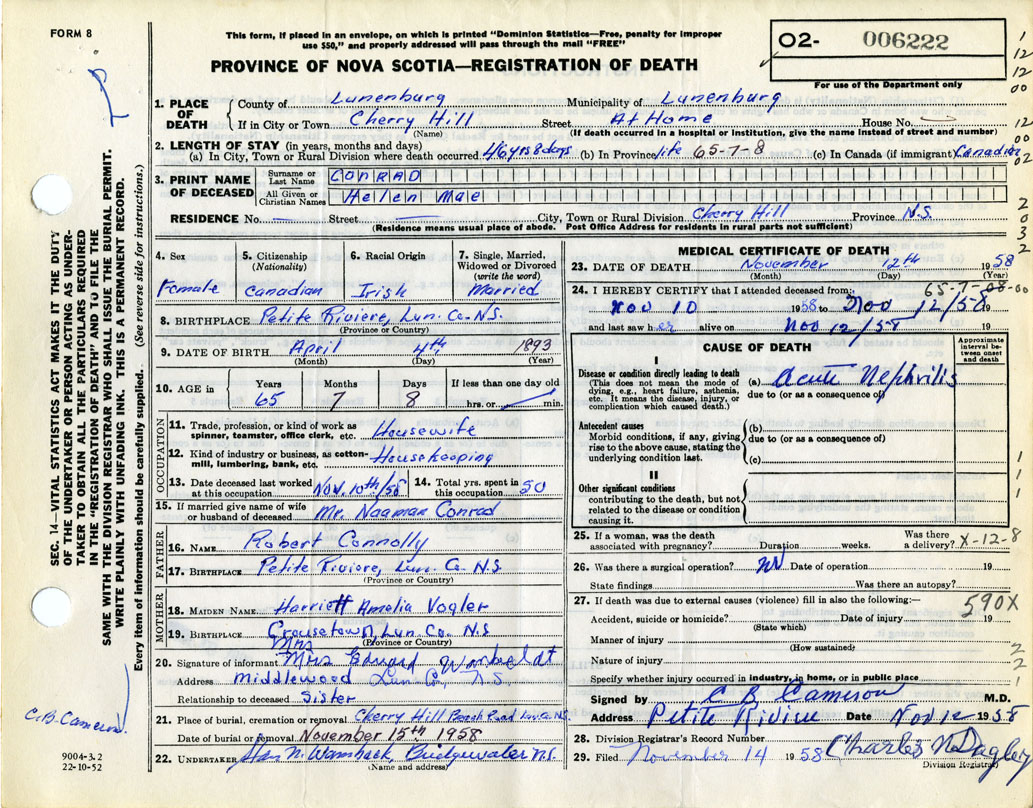 FORM 8
This form, if placed in an envelope, on which is printed "Dominion Statistics—Free, penalty for improper
use $50," and properly addressed will pass through the mail "FREE"
PROVINCE OF NOVA SCOTIA—REGISTRATION OF DEATH
02- 006222
For use of the Department only
1. PLACE OF DEATH
County of Lunenburg Municipality of Lunenburg
If in City or Town Cherry Hill Street At Home House No.
(Name) (If death occurred in a hospital or institution, give the name instead of street and number)
2. LENGTH OF STAY (in years, months and days)
(a) In City, Town or Rural Division where death occurred 46 yrs 8 days (b) In Province life 65-7-8 (c) In Canada (if immigrant) Canadian
3. PRINT NAME OF DECEASED
Surname or Last Name CONRAD
All Given or Christian Names Helen Mae
RESIDENCE No. — Street — City, Town or Rural Division Cherry Hill Province N.S.
(Residence means usual place of abode. Post Office Address for residents in rural parts not sufficient)
4. Sex Female
5. Citizenship (Nationality) Canadian
6. Racial Origin Irish
7. Single, Married, Widowed or Divorced (write the word) Married
8. BIRTHPLACE Petite Riviere, Lun. Co. N.S.
(Province or Country)
9. DATE OF BIRTH April 4th 1893
(Month) (Day) (Year)
10. AGE in Years Months Days If less than one day old
65 7 8 hrs. or min.
OCCUPATION
11. Trade, profession, or kind of work as spinner, teamster, office clerk, etc. Housewife
12. Kind of industry or business, as cotton-mill, lumbering, bank, etc. Housekeeping
13. Date deceased last worked at this occupation Nov. 10th/58 14. Total yrs. spent in this occupation 50
15. If married give name of wife or husband of deceased Mr. Naaman Conrad
FATHER
16. NAME Robert Connolly
17. BIRTHPLACE Petite Riviere, Lun. Co. N.S
(Province or Country)
MOTHER
18. MAIDEN NAME Harriett Amelia Vogler
19. BIRTHPLACE Crousetown, Lun. Co. N.S
(Province or Country)
Mrs
20. Signature of informant Mrs
Address Middlewood Lun Co., N.S.
Relationship to deceased Sister
21. Place of burial, cremation or removal Cherry Hill Road N.S.
Date of burial or removal November 15th 1958
22. UNDERTAKER Bridgewater N.S.
(Name and address)
MEDICAL CERTIFICATE OF DEATH
23. DATE OF DEATH November 12th 1958
(Month) (Day) (Year)
65-7-08-00
24. I HEREBY CERTIFY that I attended deceased from:
Nov 10 1958 to Nov 12/58 19
and last saw her alive on Nov 12/58 19
CAUSE OF DEATH
Approximate interval between onset and death
I
Disease or condition directly leading to death
(This does not mean the mode of dying, e.g., heart failure, asthenia, etc. It means the disease, injury, or complication which caused death.)
(a) Acute Nephritis
due to (or as a consequence of)
Antecedent causes
Morbid conditions, if any, giving rise to the above cause, stating the underlying condition last.
(b)
due to (or as a consequence of)
(c)
II
Other significant conditions
contributing to the death, but not related to the disease or condition causing it.
25. If a woman, was the death associated with pregnancy? Duration weeks. Was there a delivery? X-12-8
26. Was there a surgical operation? No Date of operation 19
State findings Was there an autopsy?
27. If death was due to external causes (violence) fill in also the following:—
590X
Accident, suicide or homicide? Date of injury 19
(State which)
Manner of injury
(How sustained)
Nature of injury
Specify whether injury occurred in industry, in home, or in public place
Signed by C B Cameron M.D.
Address Petite Riviere Date Nov 12 1958
28. Division Registrar's Record Number
29. Filed November 14 1958 Charles
Division Registrar
SEC. 14—VITAL STATISTICS ACT MAKES IT THE DUTY
OF THE UNDERTAKER OR PERSON ACTING AS UNDER-
TAKER TO OBTAIN ALL THE PARTICULARS REQUIRED
IN THE "REGISTRATION OF DEATH" AND TO FILE THE
SAME WITH THE DIVISION REGISTRAR WHO SHALL ISSUE THE BURIAL PERMIT.
WRITE PLAINLY WITH UNFADING INK. THIS IS A PERMANENT RECORD.
Every item of information should be carefully supplied. (See reverse side for instructions.)
C.B. Cameron.
9004-3.2
22-10-52
1
12
12
00
12
00
00
02
2
0
3
2
1
1
1
2
2
1